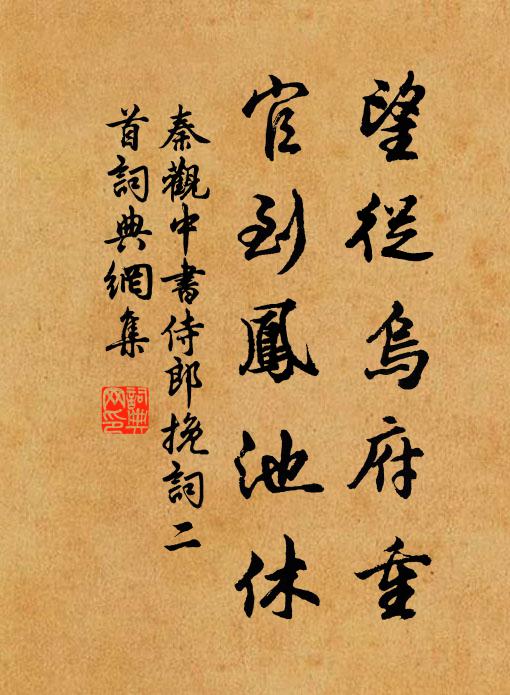 望從烏府重
官到鳳池休
秦觀中書侍郎挽詞二
首詞典網集
詞典
網印